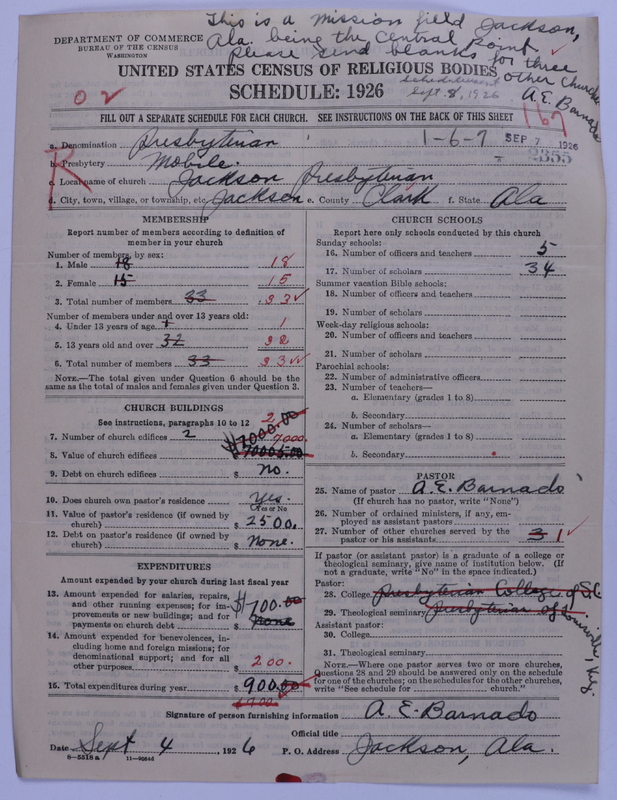 This is a Mission field Jackson,
Ala. being the Central point
please send blanks for three
other Churches
A. E. Barnado
DEPARTMENT OF COMMERCE
BUREAU OF THE CENSUS
WASHINGTON
UNITED STATES CENSUS OF RELIGIOUS BODIES
SCHEDULE: 1926
Sept. 8, 1926
167
FILL OUT A SEPARATE SCHEDULE FOR EACH CHURCH. SEE INSTRUCTIONS ON THE BACK OF THIS SHEET
R
1-6-7 SEP 7 1926
2355
a. Denomination Presbyterian
b. Presbytery Mobile.
c. Local name of church Jackson Presbyterian
d. City, town, village, or township, etc. Jackson e. County Clark f. State Ala
MEMBERSHIP
Report number of members according to definition of
member in your church
Number of members, by sex:
1. Male 18 18
2. Female 15 15
3. Total number of members 33 33
Number of members under and over 13 years old:
4. Under 13 years of age 1 1
5. 13 years old and over 32 32
6. Total number of members 33 33
NOTE.—The total given under Question 6 should be the
same as the total of males and females given under Question 3.
CHURCH BUILDINGS
See instructions, paragraphs 10 to 12
7. Number of church edifices 2 2
$7000.00 7000.
8. Value of church edifices $ 7000.00
9. Debt on church edifices $ No.
10. Does church own pastor's residence Yes.
Yes or No
11. Value of pastor's residence (if owned by
church) $ 2500.
12. Debt on pastor's residence (if owned by
church) $ None.
EXPENDITURES
Amount expended by your church during last fiscal year
13. Amount expended for salaries, repairs,
and other running expenses; for im-
provements or new buildings; and for
payments on church debt $ 700.00
none
14. Amount expended for benevolences, in-
cluding home and foreign missions; for
denominational support; and for all
other purposes $ 200.
15. Total expenditures during year $ 900.00
CHURCH SCHOOLS
Report here only schools conducted by this church
Sunday schools:
16. Number of officers and teachers 5
17. Number of scholars 34
Summer vacation Bible schools:
18. Number of officers and teachers
19. Number of scholars
Week-day religious schools:
20. Number of officers and teachers
21. Number of scholars
Parochial schools:
22. Number of administrative officers
23. Number of teachers—
a. Elementary (grades 1 to 8)
b. Secondary
24. Number of scholars—
a. Elementary (grades 1 to 8)
b. Secondary
PASTOR
25. Name of pastor A. E. Barnado
(If church has no pastor, write "None")
26. Number of ordained ministers, if any, em-
ployed as assistant pastors
27. Number of other churches served by the
pastor or his assistants 3 1
If pastor (or assistant pastor) is a graduate of a college or
theological seminary, give name of institution below. (If
not a graduate, write "No" in the space indicated.)
Pastor:
28. College Presbyterian College of S.C.
29. Theological seminary Presbyterian of Louisville, Ky.
Assistant pastor:
30. College
31. Theological seminary
NOTE.—Where one pastor serves two or more churches,
Questions 28 and 29 should be answered only on the schedule
for one of the churches; on the schedules for the other churches,
write "See schedule for church."
Signature of person furnishing information A. E. Barnado
Official title
Date Sept 4, 1926 P. O. Address Jackson, Ala.
8—5518 a 11—9564